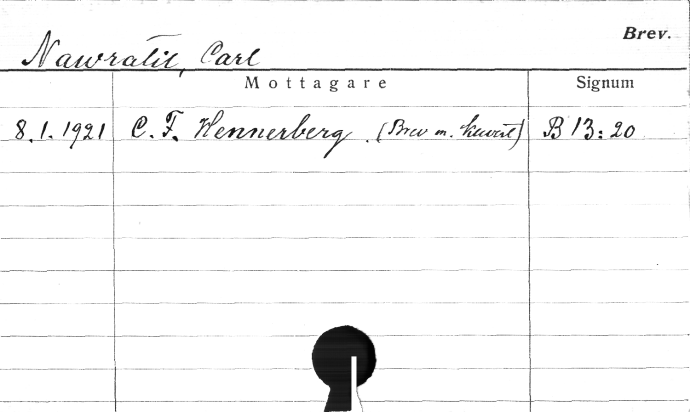 Brev.
Nawratil, Carl
Mottagare Signum
8.1.1921 C. F. Hennerberg. (Brev m. kuvert) B 13:20